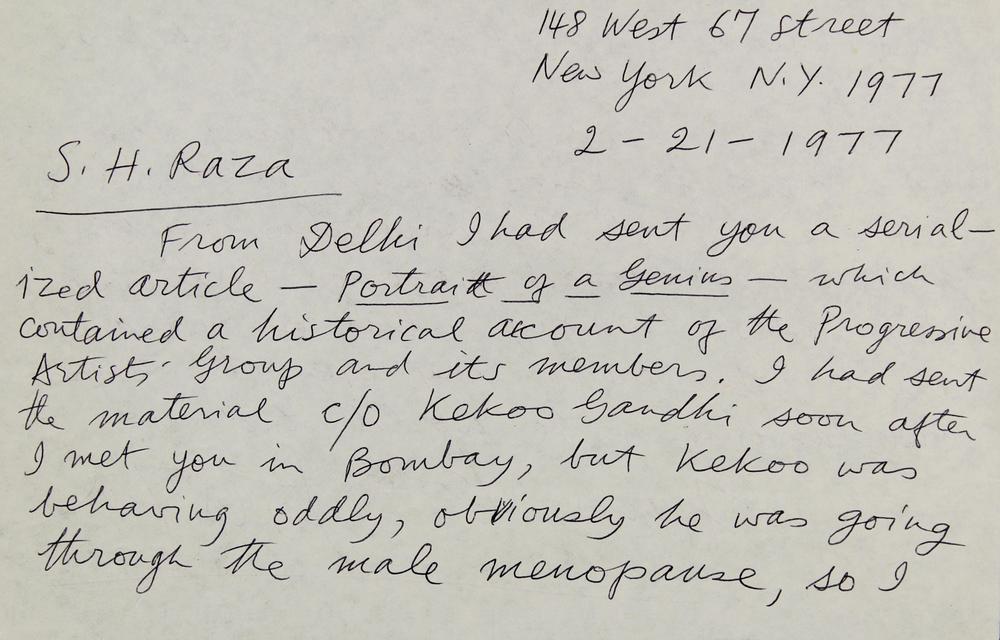 148 West 67 street
New York N.Y. 1977
2-21-1977
S. H. Raza
From Delhi I had sent you a serial-
ized article — Portrait of a Genius — which
contained a historical account of the Progressive
Artists' Group and its members. I had sent
the material c/o Kekoo Gandhi soon after
I met you in Bombay, but Kekoo was
behaving oddly, obviously he was going
through the male menopause, so I